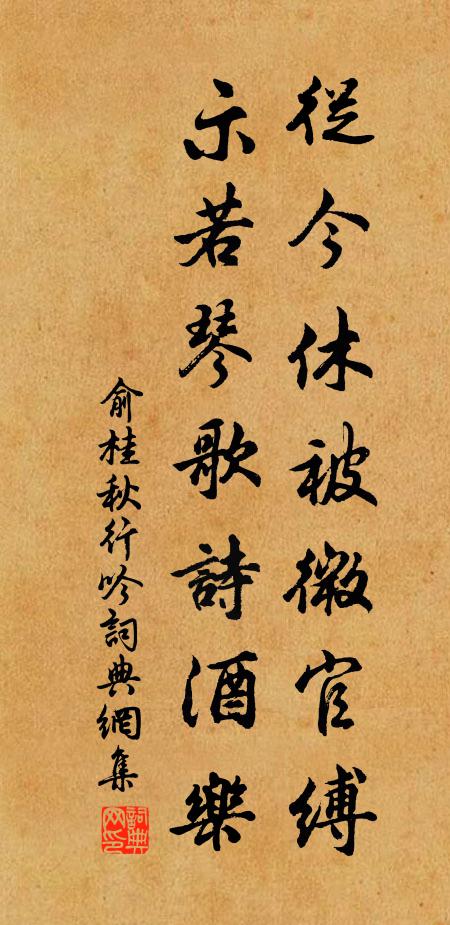 從今休被微官縛
示若琴歌詩酒樂
俞桂秋行吟詞典網集
詞典网印